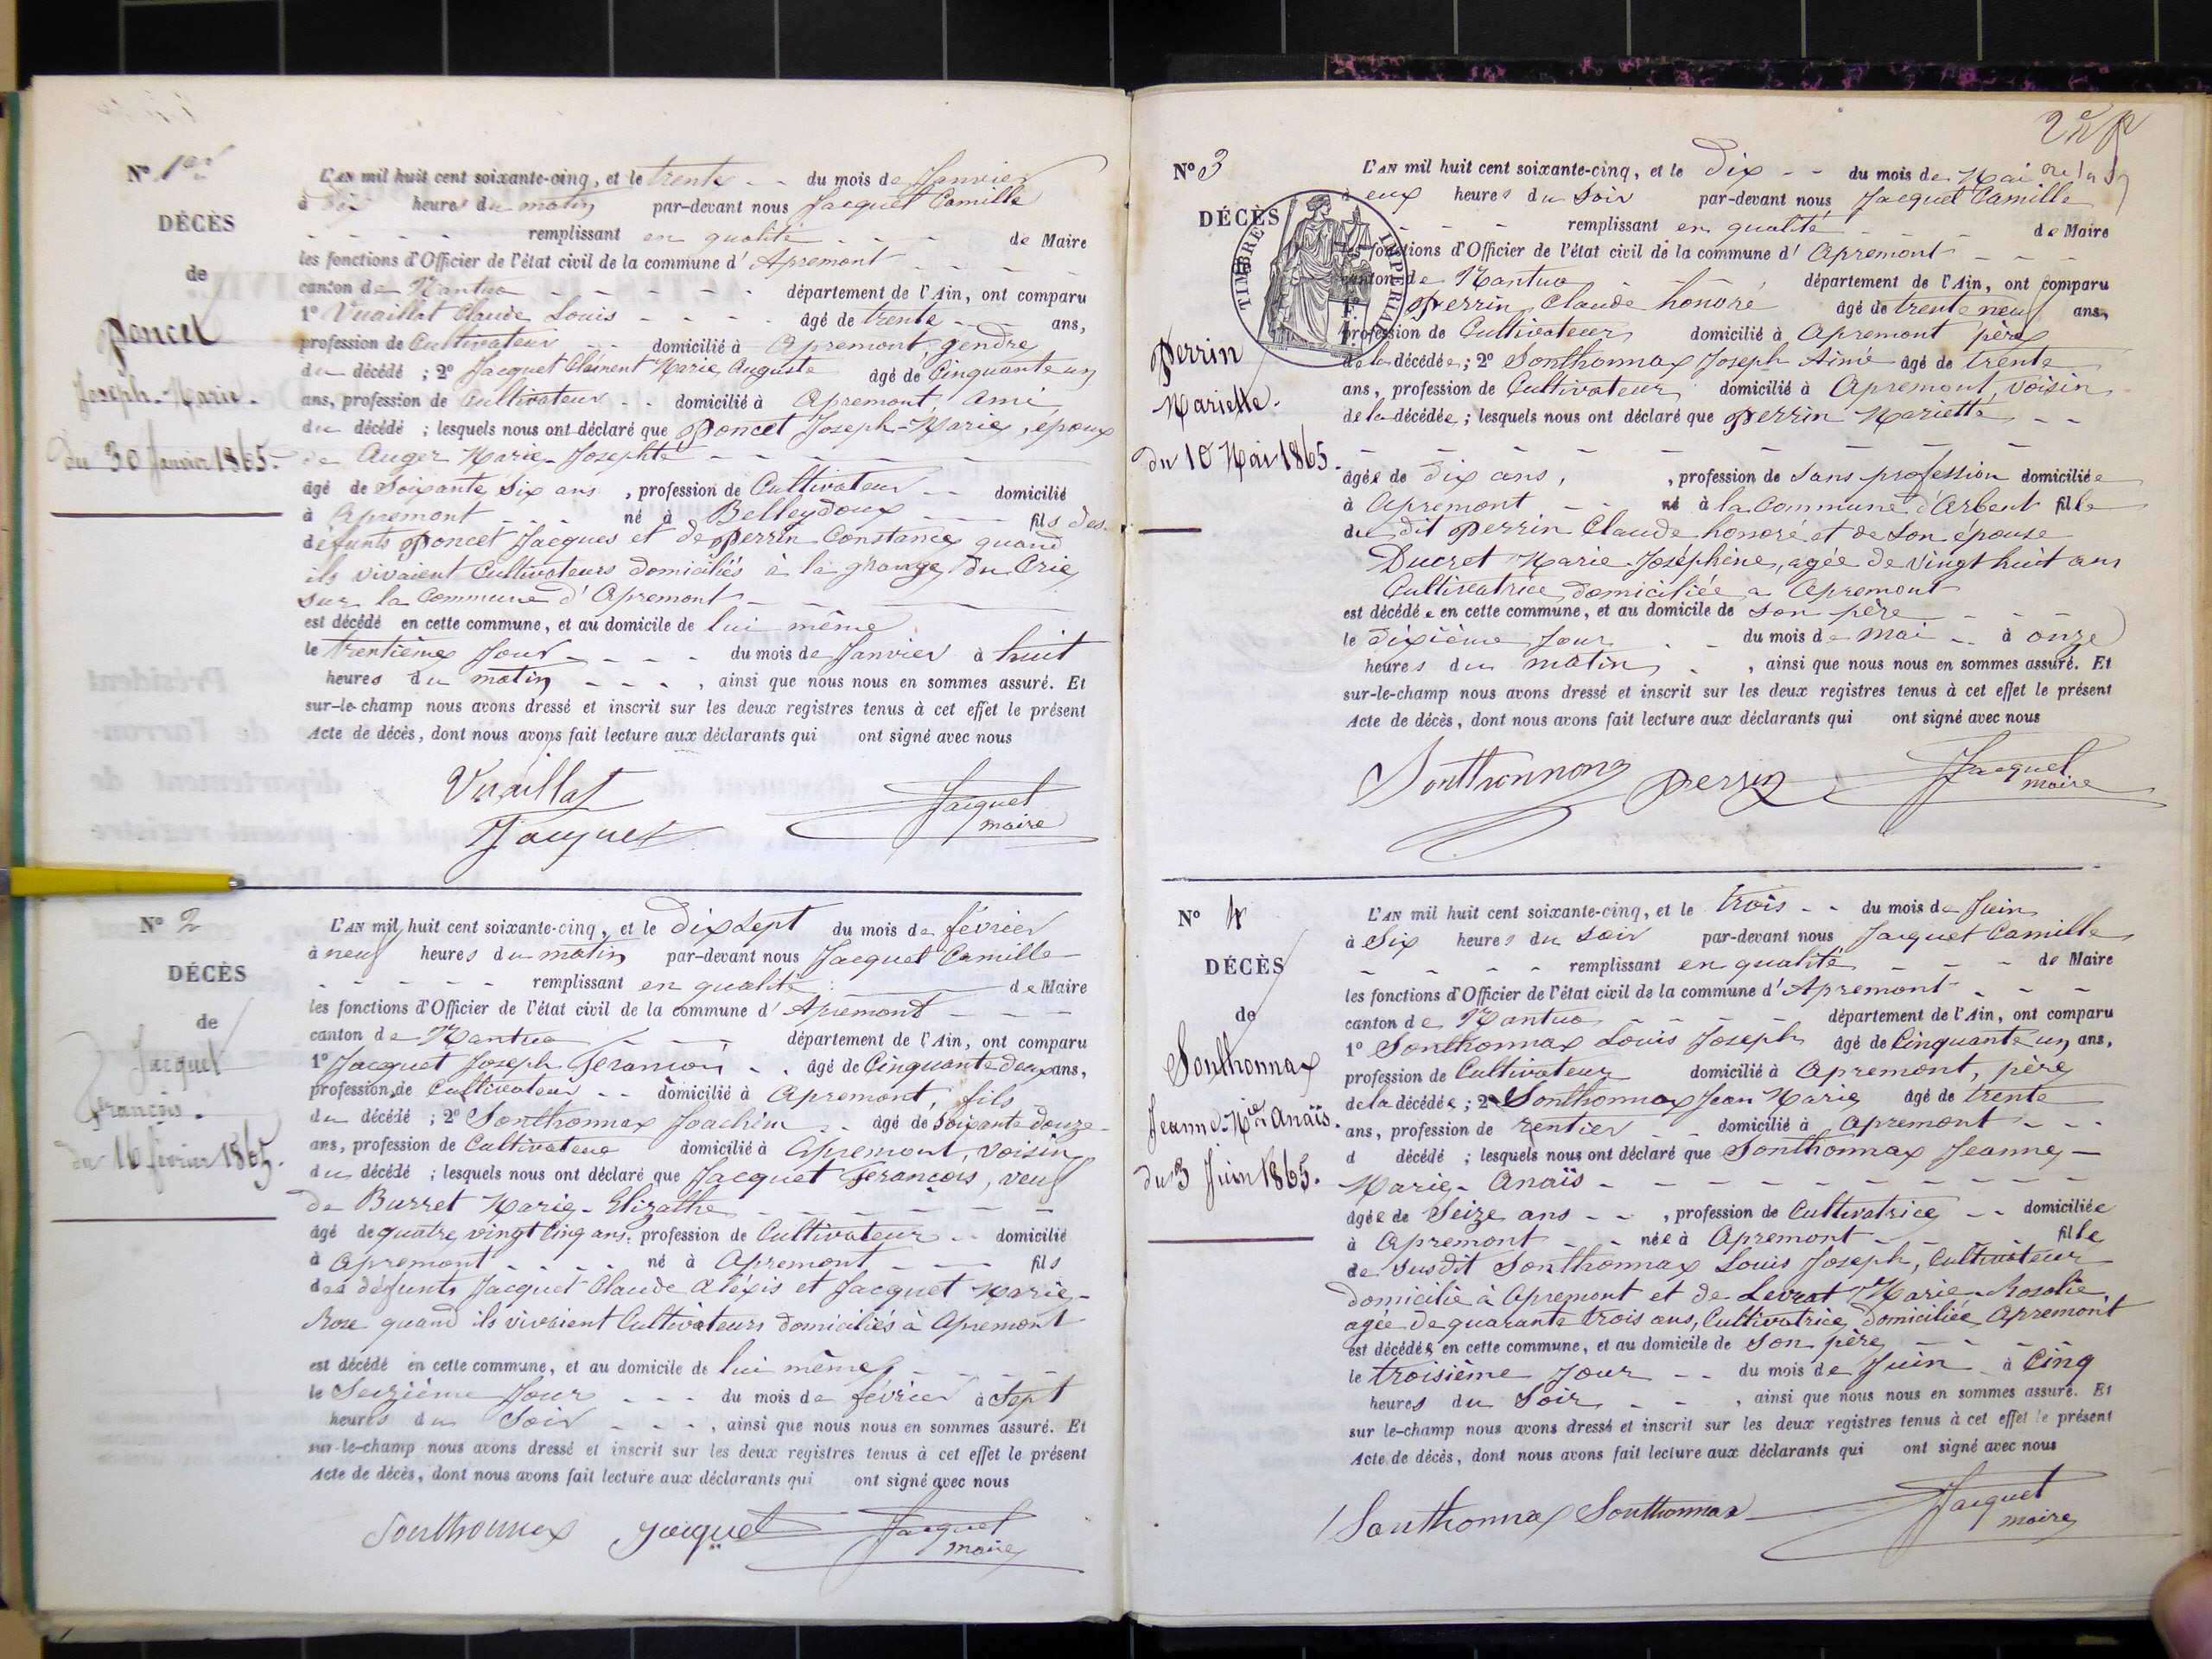 N° 1er
DÉCÈS
de
Poncet
Joseph-Marie.
du 30 Janvier 1865.
L'AN mil huit cent soixante-cinq, et le trente du mois de Janvier
à dix heures du matin par-devant nous Jacquet Camille
remplissant en qualité de Maire
les fonctions d'Officier de l'état civil de la commune d'Apremont
canton de Nantua département de l'Ain, ont comparu
1° Vuaillat Claude Louis âgé de trente ans,
profession de Cultivateur domicilié à Apremont, gendre
du décédé ; 2° Jacquet Clément Marie Auguste âgé de Cinquante un
ans, profession de Cultivateur domicilié à Apremont, ami
du décédé ; lesquels nous ont déclaré que Poncet Joseph-Marie, époux
de Auger Marie-Josephte
âgé de Soixante Six ans, profession de Cultivateur domicilié
à Apremont né à Belleydoux fils des
défunts Poncet Jacques et de Perrin Constance quand
ils vivaient Cultivateurs domiciliés à la grange du Crie
sur la Commune d'Apremont
est décédé en cette commune, et au domicile de lui même
le trentième Jour du mois de Janvier à huit
heures du matin, ainsi que nous nous en sommes assuré. Et
sur-le-champ nous avons dressé et inscrit sur les deux registres tenus à cet effet le présent
Acte de décès, dont nous avons fait lecture aux déclarants qui ont signé avec nous
Vuaillat
Jacquet
Jacquet
maire
N° 2
DÉCÈS
de
Jacquet
François.
du 16 février 1865.
L'AN mil huit cent soixante-cinq, et le Dix Sept du mois de février
à neuf heures du matin par-devant nous Jacquet Camille
remplissant en qualité de Maire
les fonctions d'Officier de l'état civil de la commune d'Apremont
canton de Nantua département de l'Ain, ont comparu
1° Jacquet Joseph François âgé de Cinquante deux ans,
profession de Cultivateur domicilié à Apremont, fils
du décédé ; 2° Sonthonnax Joachim âgé de Soixante douze
ans, profession de Cultivateur domicilié à Apremont, voisin
du décédé ; lesquels nous ont déclaré que Jacquet François, veuf
de Burret Marie-Elizathe
âgé de quatre vingt Cinq ans, profession de Cultivateur domicilié
à Apremont né à Apremont fils
des défunts Jacquet Claude Aléxis et Jacquet Marie-
Rose quand ils vivaient Cultivateurs domiciliés à Apremont
est décédé en cette commune, et au domicile de lui même
le Seizième Jour du mois de février à Sept
heures du Soir, ainsi que nous nous en sommes assuré. Et
sur-le-champ nous avons dressé et inscrit sur les deux registres tenus à cet effet le présent
Acte de décès, dont nous avons fait lecture aux déclarants qui ont signé avec nous
Sonthonnex Jacquet Jacquet
maire
N° 3
DÉCÈS
TIMBRE IMPERIAL
Perrin
Mariette.
du 10 Mai 1865.
L'AN mil huit cent soixante-cinq, et le Dix du mois de Mai
à eux heures du Soir par-devant nous Jacquet Camille
remplissant en qualité de Maire
les fonctions d'Officier de l'état civil de la commune d'Apremont
canton de Nantua département de l'Ain, ont comparu
1° Perrin Claude honoré âgé de trente neuf ans,
profession de Cultivateur domicilié à Apremont père
de la décédée ; 2° Sonthonnax Joseph Aimé âgé de trente
ans, profession de Cultivateur domicilié à Apremont, voisin
de la décédée ; lesquels nous ont déclaré que Perrin Mariette
âgée de dix ans, profession de Sans profession domiciliée
à Apremont né à la Commune d'Arbent fille
du dit Perrin Claude honoré et de Son épouse
Ducret Marie-Joséphine, agée de vingt huit ans
Cultivatrice domiciliée à Apremont
est décédée en cette commune, et au domicile de son père
le dixième Jour du mois de mai à onze
heures du matin, ainsi que nous nous en sommes assuré. Et
sur-le-champ nous avons dressé et inscrit sur les deux registres tenus à cet effet le présent
Acte de décès, dont nous avons fait lecture aux déclarants qui ont signé avec nous
Sonthonnax Perrin Jacquet
maire
N° 4
DÉCÈS
de
Sonthonnax
Jeanne-Mie Anaïs.
du 3 Juin 1865.
L'AN mil huit cent soixante-cinq, et le trois du mois de Juin
à Six heures du Soir par-devant nous Jacquet Camille
remplissant en qualité de Maire
les fonctions d'Officier de l'état civil de la commune d'Apremont
canton de Nantua département de l'Ain, ont comparu
1° Sonthonnax Louis Joseph âgé de Cinquante un ans,
profession de Cultivateur domicilié à Apremont, père
de la décédée ; 2° Sonthonnax Jean Marie âgé de trente
ans, profession de rentier domicilié à Apremont
d décédé ; lesquels nous ont déclaré que Sonthonnax Jeanne-
Marie-Anaïs
âgée de Seize ans, profession de Cultivatrice domiciliée
à Apremont née à Apremont fille
de Susdit Sonthonnax Louis Joseph, Cultivateur
domicilié à Apremont et de Levrat Marie-Rosalie,
agée de quarante trois ans, Cultivatrice, Domiciliée Apremont
est décédée en cette commune, et au domicile de son père
le troisième Jour du mois de Juin à Cinq
heures du Soir, ainsi que nous nous en sommes assuré. Et
sur-le-champ nous avons dressé et inscrit sur les deux registres tenus à cet effet le présent
Acte de décès, dont nous avons fait lecture aux déclarants qui ont signé avec nous
Sonthonnax Sonthonnax Jacquet
maire